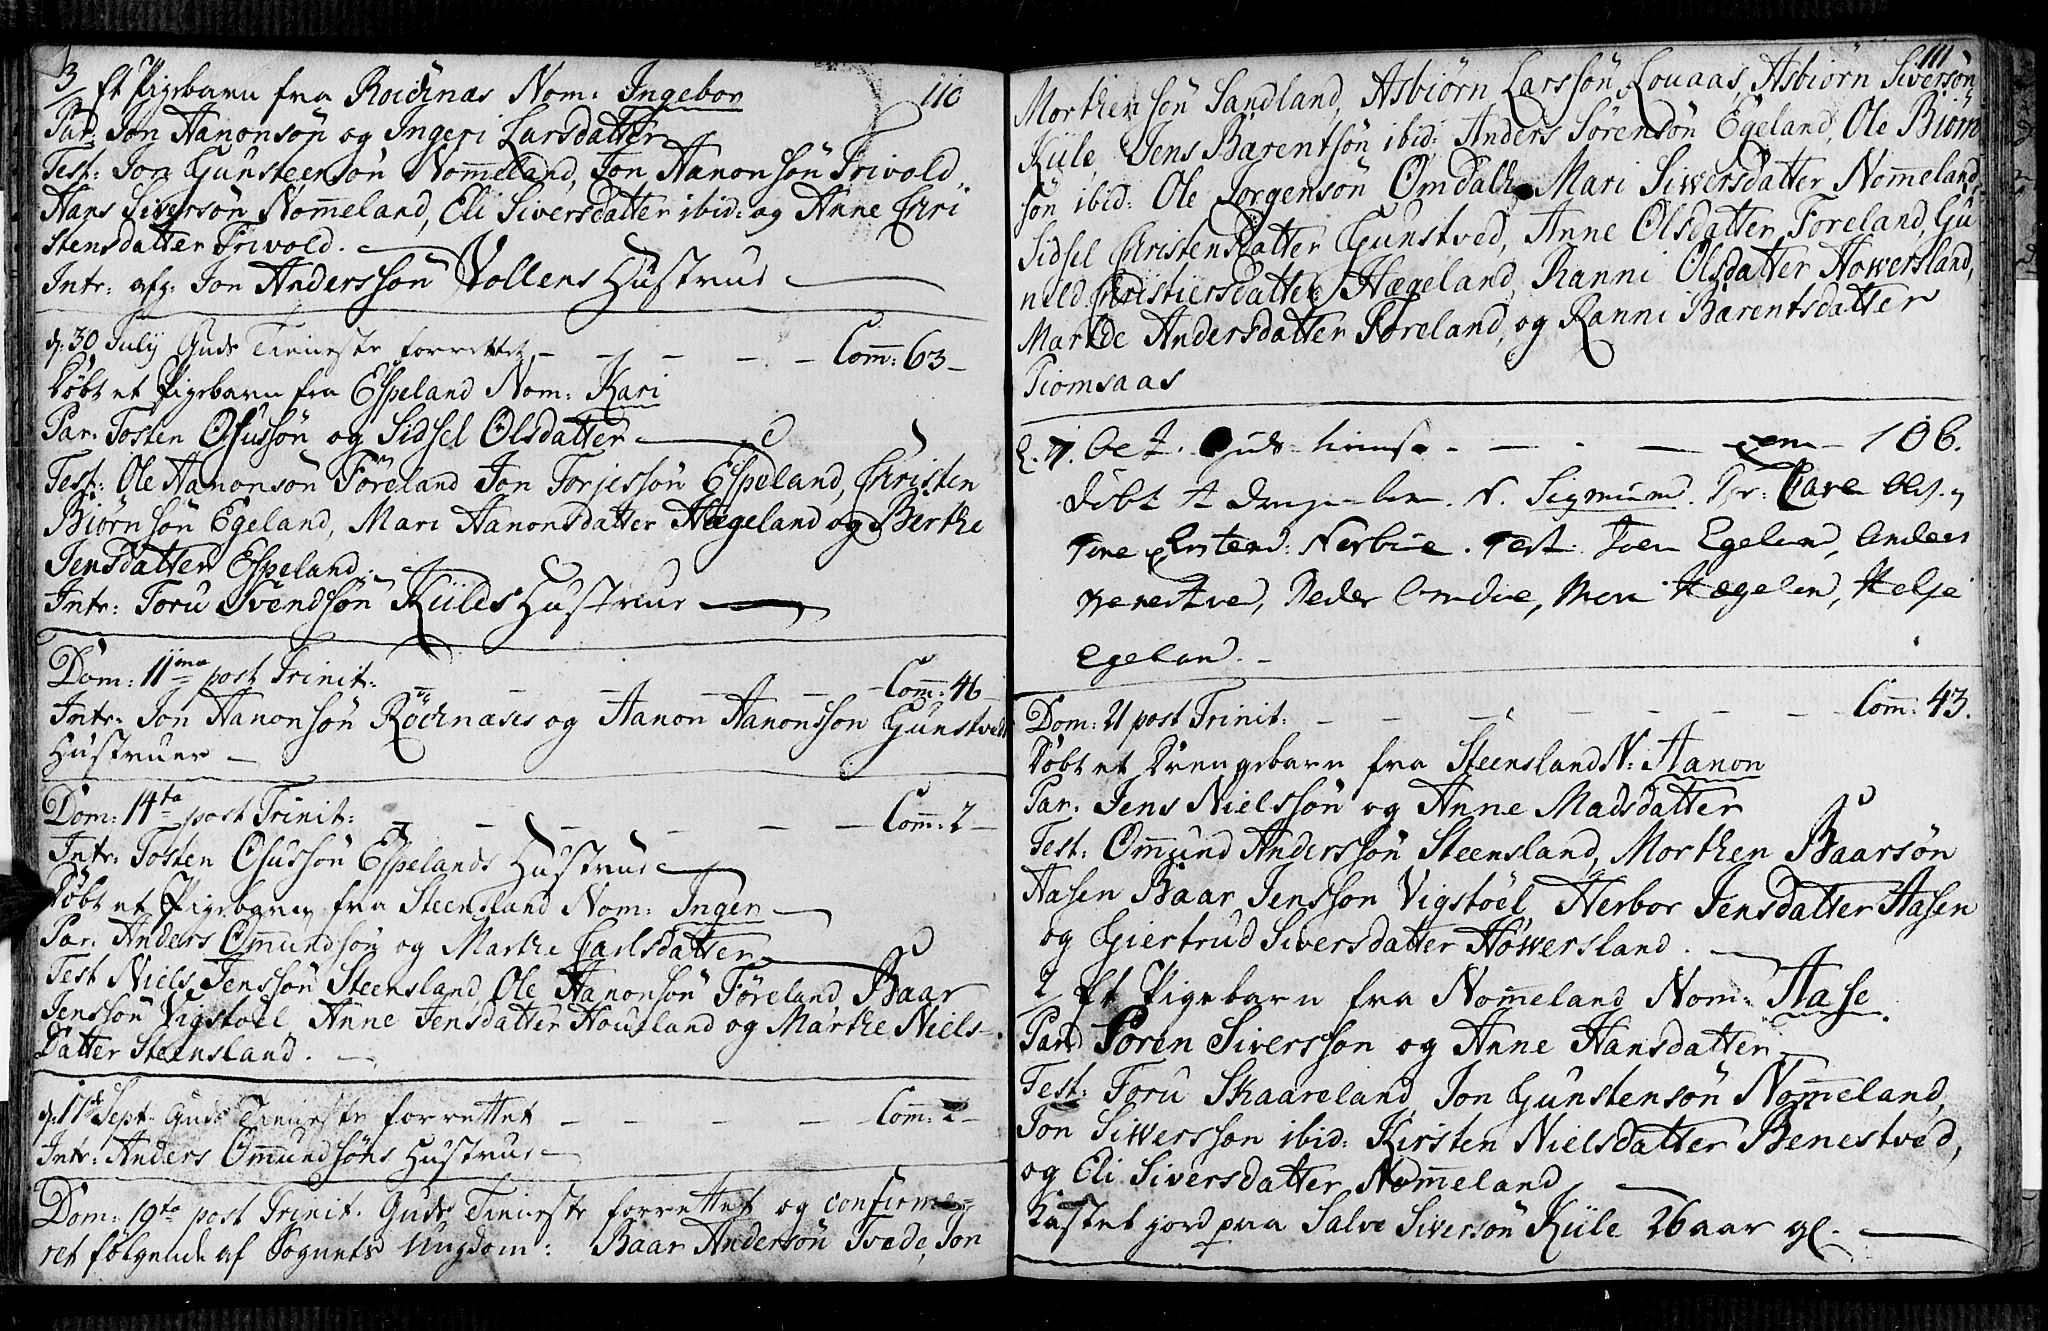 110
3/ Et Pigebarn fra Roidnas Nom: Ingebor
Par: Jon Aanonsön og Ingeri Larsdatter
Test: Jon Gunsteensön Nom̅eland, Jon Aanonsön Trivold,
Hans Siversön Nom̅eland, Eli Siversdatter ibid: og Anne Chri
stensdatter Trivold.
Intr: afg: Jon Anderssön Vollens Hustrue
d. 30 July Guds Tieneste forrettet – – – – – Com̅: 63 –
Döbt et Pigebarn fra Espeland Nom: Kari
Par: Tosten Osussön og Sidsel Olsdatter
Test: Ole Aanonsön Föreland Jon Torjessön Espeland, Christen
Biörnsön Egeland, Mari Aanonsdatter Hægeland og Berthe
Jensdatter Espeland.
Intr: Toru Svendsön Küles Hustrue
Dom: 11ma post Trinit: – – – – – Com̅: 46
Intr: Jon Aanonsön Rödnæses og Aanon Aanonsson Gunstvedt
Hustruer –
Dom: 14ta post Trinit: – – – – – Com̅: 2 –
Intr: Tosten Osussön Espelands Hustrue
Döbt et Pigebarn fra Steensland Nom: Inger
Par: Anders Om̅undsön og Marthe Carlsdatter
Test Niels Jenssön Steensland, Ole Aanonsön Föreland, Baar
Jenssön Vigstöel Anne Jensdatter Houeland og Marthe Niels-
Datter Steensland.
d. 17de Sept. Guds Tieneste forrettet – – – – Com̅: 2 –
Intr: Anders Om̅undsöns Hustrue
Dom: 19ta post Trinit. Guds Tieneste forrettet og confirme=
ret fölgende af Sognets Ungdom: Baar Andersön Tvede, Jon
111
Morthensön Sandland, Asbiörn Larssön Louaas, Asbiörn Siversön
Küle, Jens Barentsön ibid: Anders Sörensön Egeland, Ole Biörn
sön ibid: Ole Jörgensön Omdall, Mari Siversdatter Nom̅eland,
Sidsel Christensdatter Gunstved, Anne Olsdatter Foreland, Gu
nild Christiersdatter Hægeland, Ranni Olsdatter Howersland,
Marthe Andersdatter Föreland, og Ranni Barentsdatter
Tiomsaas
d. 7. Oct. Guds tienist – – – – 106.
Döbt et drengebarn N. Sigmund. Par: Tare Ols. og
Tore Erstend: Nerbüe. Test: Toen Egeland, Anders
Benestved, Peder Omdal, Mari Hægeland, Helje
Egeland. –
Dom: 21 post Trinit: – – – – – – Com̅: 43.
Döbt et Drengebarn fra Steensland N: Aanon
Par: Jens Nielssön og Anne Madsdatter
Test: Om̅und Anderssön Steensland, Morthen Baarsön
Aasen Baar Jensson Vigstöel, Herbor Jensdatter Aasen
og Giertrud Siversdatter Höwersland.
2/ Et Pigebarn fra Nom̅eland Nom: Aase
Par: Sören Siversson og Anne Hansdatter
Test: Toru Skaareland Jon Gunstensön Nom̅eland,
Jon Siversson ibid: Kirsten Nielsdatter Benestved,
og Eli Siversdatter Nom̅eland
Kastet jord paa Salve Siversön Küle 26 aar gl.